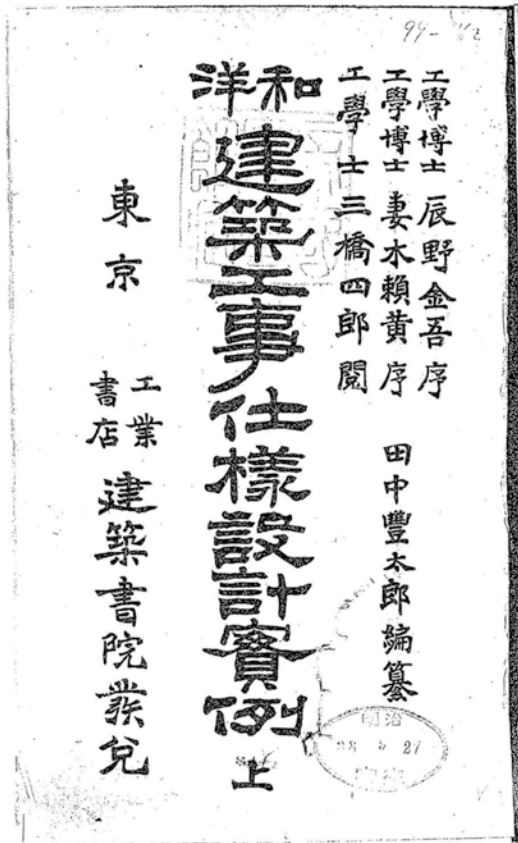 工學博士 辰野金吾序
工學博士 妻木賴黄序
工學士 三橋四郎閲
田中豐太郎編纂
和洋
建築工事仕樣設計實例 上
東京
工業書店
建築書院發兌
99-
明治
27